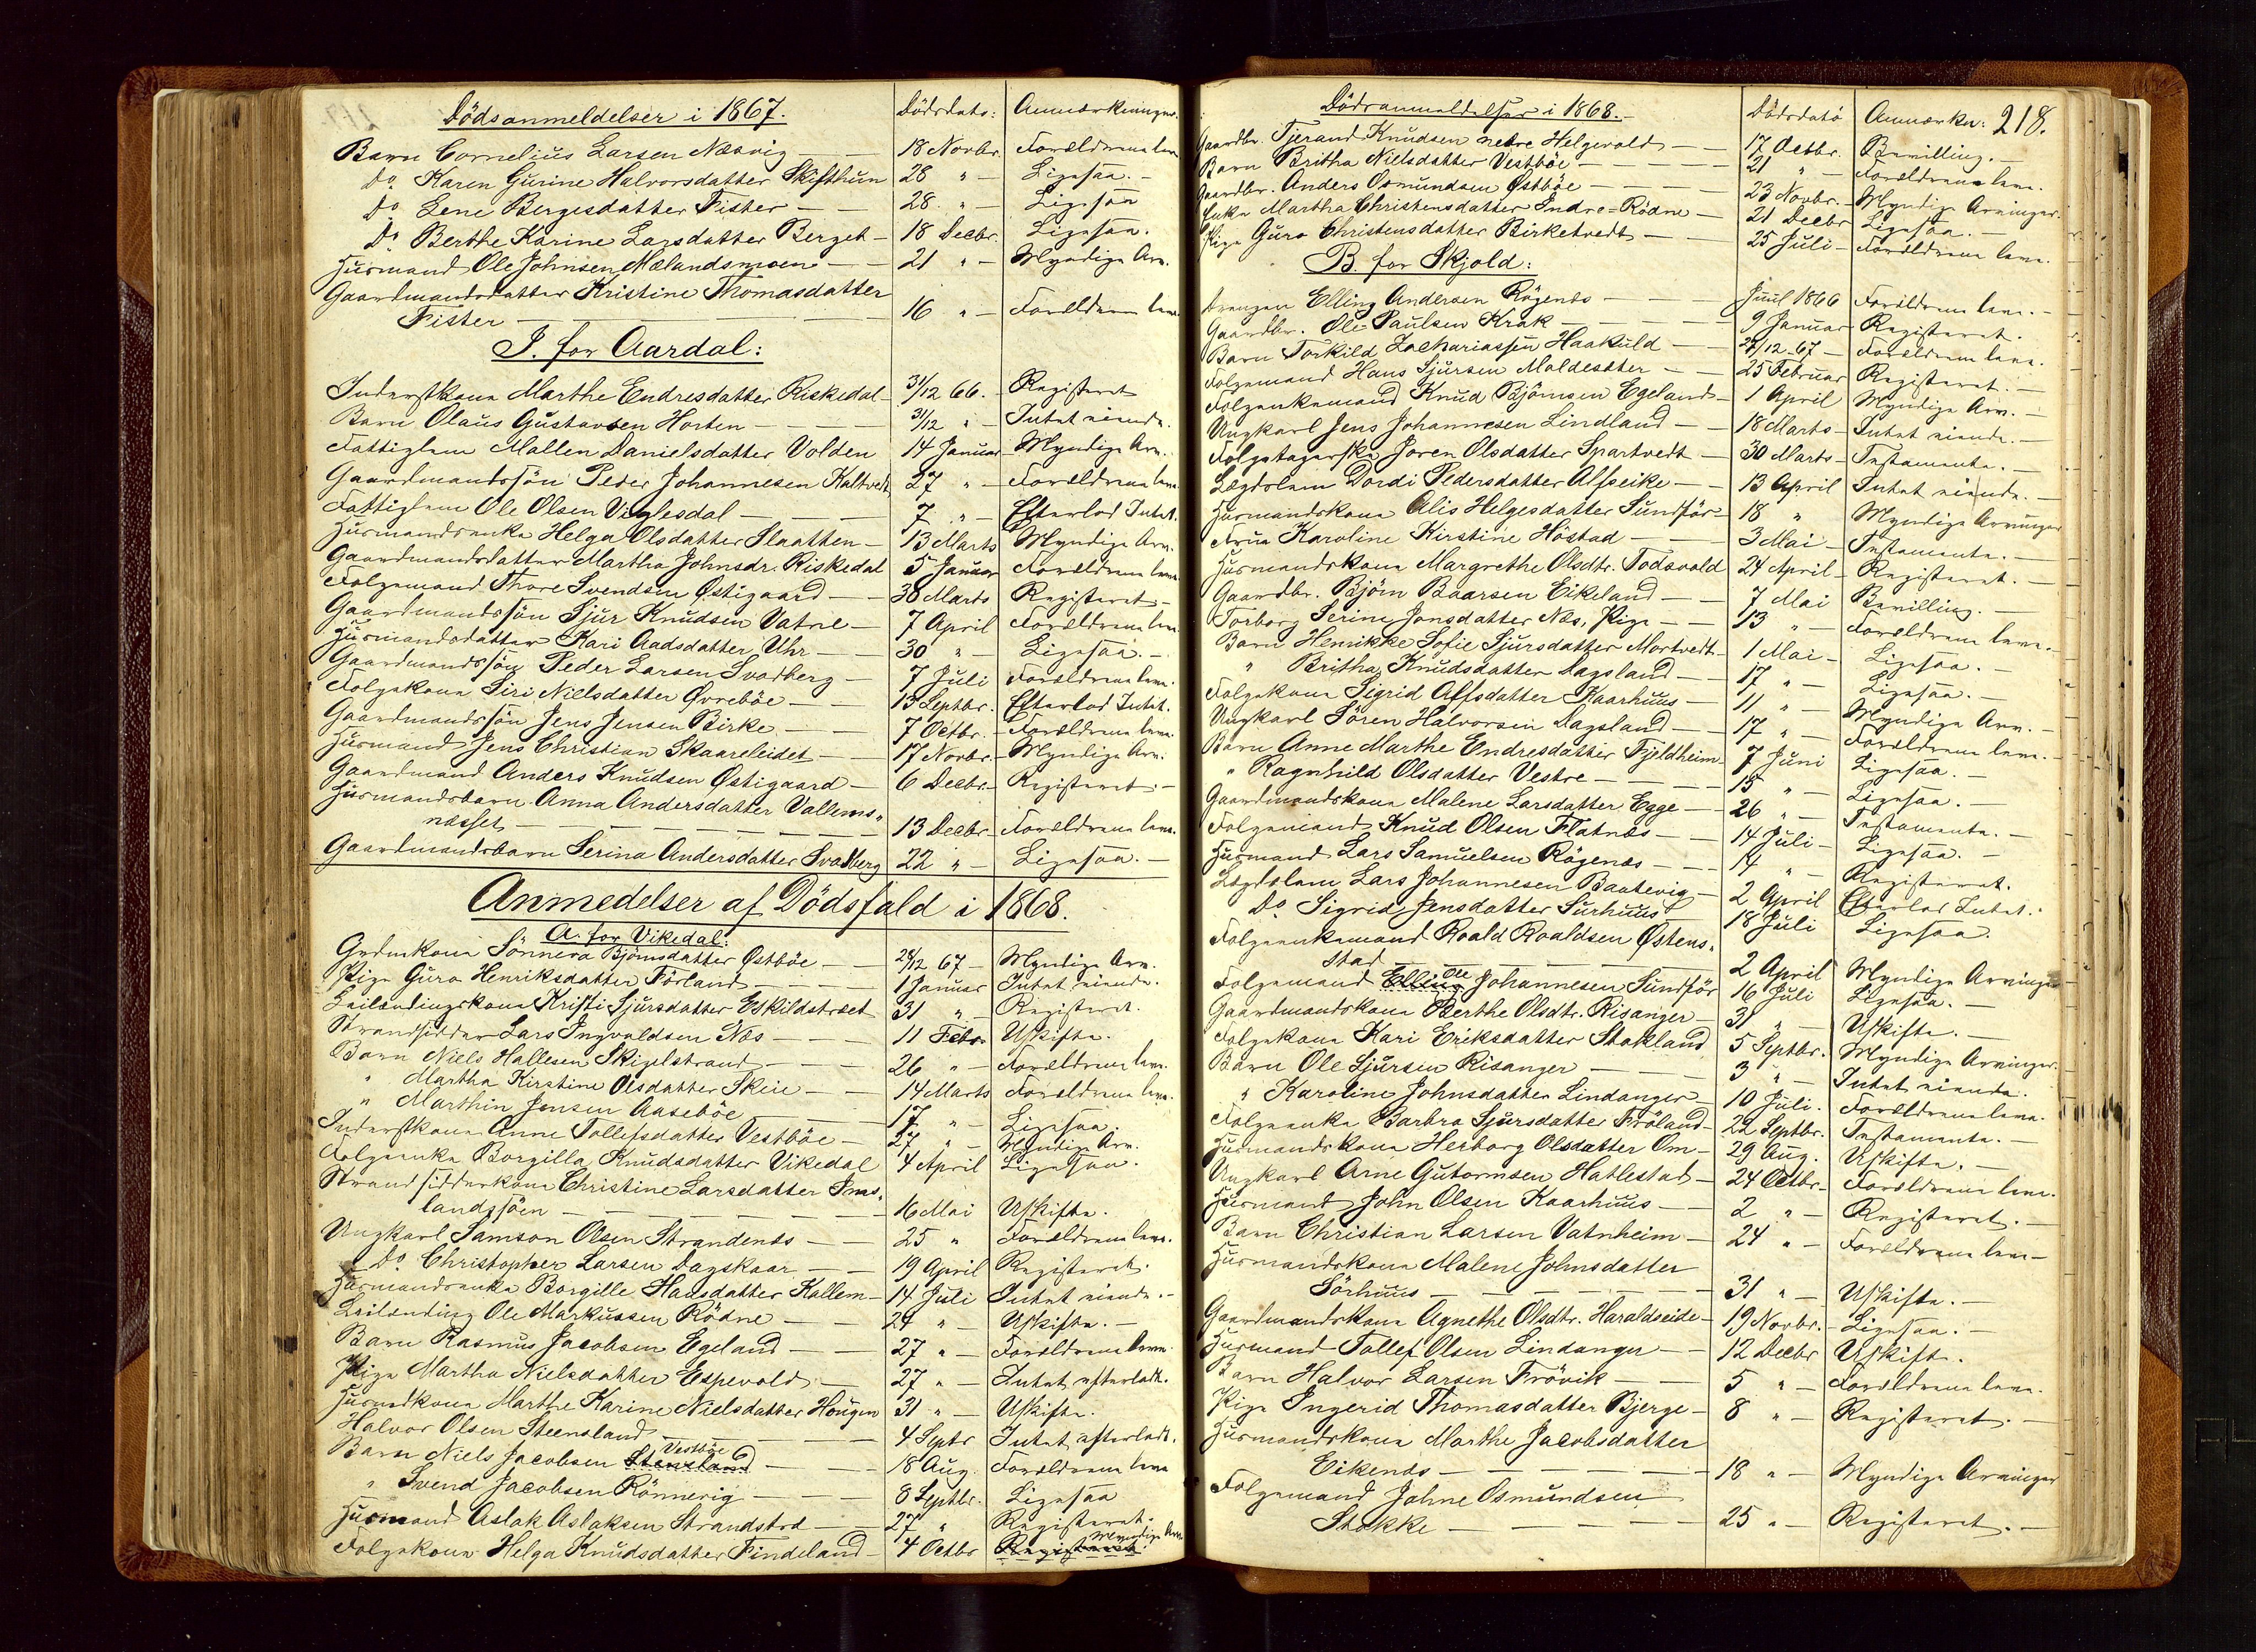 Dödsanmeldelser i 1867. Dödsdato: Anmærkninger.
Barn Cornelius Larsen Næsvig — 18 Novbr. Forældrene leve
Do Karen Gurine Halvorsdatter Skifthun 28 " — Ligesaa. —
Do Lene Bergesdatter Fister — 28. " — Ligesaa
Do Berthe Karine Larsdatter Berget — 18 Decbr. Ligesaa.
Huusmand Ole Johnsen Mælandsmoen — 21 " — Myndige Arv.
Gaardmandsdatter Kristine Thomasdatter
Fister — 16 " — Forældrene leve
I. for Aardal:
Inderstkone Marthe Endresdatter Riskedal — 31/12 66. Registeret
Barn Olaus Gustavsen Horten — 31/12 " — Intet eiende.
Fattiglem Mallen Danielsdatter Volden 14 Januar Myndige Arv.
Gaardmandssön Peder Johannesen Kaltvedt 27 " — Forældrene leve
Fattiglem Ole Olsen Viglesdal — 7 " — Efterlod Intet.
Huusmandsenke Helga Olsdatter Slaatten — 13 Marts Myndige Arv.
Gaardmandsdatter Martha Johnsdr. Riskedal 5 Januar Forældrene leve
Folgemand Thore Svendsen Östigaard — 30 Marts Registeret —
Gaardmandssön Sjur Knudsen Vatne — 7 April Forældrene leve
Huusmandsdatter Kari Aadsdatter Uhr — 30 " — Ligesaa. —
Gaardmandssön Peder Larsen Svadberg — 7 Juli Forældrene leve.
Folgekone Siri Nielsdatter Øvreböe — 13 Septbr. Efterlod Intet.
Gaardmandssön Jens Jensen Birke — 7 Octbr. — Forældrene leve.
Huusmand Jens Christian Skaareleidet — 17 Novbr. — Myndige Arv.
Gaardmand Anders Knudsen Östigaard — 6 Decbr. — Registeret. —
Huusmandsbarn Anna Andersdatter Vallems-
næsset — 13 Decbr. Forældrene leve.
Gaardmandsbarn Serina Andersdatter Svadberg 22 " — Ligesaa. —
Anmedelser af Dödsfald i 1868.
A. for Vikedal:
Grdmkone Sönneva Björnsdatter Østböe — 28/12 67 — Myndige Arv.
Pige Guro Henriksdatter Förland — 1 Januar Intet eiende.
Leilændingskone Kristi Sjursdatter Eskildstræet 31 " — Registeret.
Strandsidder Lars Ingvaldsen Næs — 11 Febr. Uskifte.
Barn Niels Hallesen Skigelstrand — 26 " — Forældrene leve.
" Martha Kirstine Olsdatter Skeie — 14 Marts Forældrene leve.
" Marthin Jensen Aaseböe — 17 " — Ligesaa.
Inderstkone Anne Tollefsdatter Vestböe — 27 " — Myndige Arv.
Folgeenke Borgilla Knudsdatter Vikedal 4 April Ligesaa.
Strandsidderkone Christine Larsdatter Ims-
landssjöen — 16 Mai Uskifte.
Ungkarl Samson Olsen Strandenæs — 25 " Forældrene leve.
Do Christopher Larsen Dagskaar — 19 April Registeret.
Huusmandsenke Borgille Hansdatter Kallem — 14 Juli Intet eiende. —
Leilænding Ole Markussen Rödne — 24 " — Uskifte. —
Barn Rasmus Jacobsen Egeland — 27 " — Forældrene leve
Pige Martha Nielsdatter Espevold — 27 " — Intet efterladt.
Huusmdkone Marthe Karine Nielsdatter Hougen 31 " — Uskifte.
Halvor Olsen Steensland — 4 Septr Intet efterladt.
Barn Niels Jacobsen Steensland Vestböe — 18 Aug. Forældrene leve
" Svend Jacobsen Rönnevig — 8 Septbr. Ligesaa
Huusmand Aslak Aslaksen Strandstød — 27 " Registeret.
Folgekone Helga Knudsdatter Findeland — 4 Octbr Registeret Myndige Arv.
Dödsanmeldelser i 1868. — Dödsdato Anmærkn: 218.
Gaardbr. Tjerand Knudsen nedre Helgevold — 17 Octbr. Bevilling. —
Barn Britha Nielsdatter Vestböe — 21 " — Forældrene leve.
Gaardbr. Anders Osmundsen Østböe — 23 Novbr. — Myndige Arvinger.
Enke Martha Christensdatter Indre-Rödne — 21 Decbr Ligesaa. —
Pige Guro Christensdatter Birketvedt — 25 Juli — Forældrene leve.
B. for Skjold:
Drengen Elling Andersen Rögenæs — Juul 1866 Forældrene leve. —
Gaardbr. Ole Paulsen Krak — 9 Januar Registeret.
Barn Torkild Zachariassen Haakuld — 27/12-67 — Forældrene leve.
Folgemand Hans Sjursen Maldesæter — 25 Februar Registeret. —
Folgeenkemand Knud Björnsen Egeland — 1 April Myndige Arv. —
Ungkarl Jens Johannesen Lindland — 18 Marts — Intet eiende. —
Folgetagerske Joren Olsdatter Spartvedt — 30 Marts — Testamente. —
Lægdslem Dordi Pedersdatter Alfseike — 13 April Intet eiende. —
Huusmandskone Alis Helgesdatter Sundför — 18 " Myndige Arvinger
Fru Karoline Kirstine Höstad — 3 Mai — Testamente. —
Huusmandskone Margrethe Olsdtr. Todsvold 24 April — Registeret. —
Gaardbr. Björn Baarsen Eikeland — 7 Mai Bevilling. —
Torborg Serine Jonsdatter Næs, Pige — 13 " — Forældrene leve.
Barn Henrikke Sofie Sjursdatter Mortvedt — 1 Mai — Ligesaa. —
" Britha Knudsdatter Dagsland — 17 " — Ligesaa. —
Folgekone Sigrid Alfsdatter Kaarhuus — 11 " — Myndige Arv. —
Ungkarl Sören Halvorsen Dagsland — 17 " — Forældrene leve. —
Barn Anne Marthe Endresdatter Fjeldheim — 7 Juni Ligesaa. —
" Ragnhild Olsdatter Vestre — 15 " — Ligesaa. —
Gaardmandskone Malene Larsdatter Egge — 26 " — Testamente. —
Folgemand Knud Olsen Flatnæs — 14 Juli — Ligesaa. —
Huusmand Lars Samuelsen Rögenæs — 14 " — Registeret.
Lægdslem Lars Johannesen Baatevig — 2 April Efterlod Intet.
Do Sigrid Jensdatter Surhuus — 18 Juli Ligesaa.
Folgeenkemand Roald Roaldsen Østens-
stad — 2 April Myndige Arvinger
Folgemand Elling Ole Johannesen Sundför 16 Juli Ligesaa. —
Gaardmandskone Berthe Olsdtr. Risanger — 31 " — Uskifte. —
Folgekone Kari Eriksdatter Stakland 5 Septbr. Myndige Arvinger.
Barn Ole Sjursen Risanger — 3 " — Intet eiende.
" Karoline Johnsdatter Lindanger — 10 Juli. Forældrene leve.
Folgeenke Barbro Sjursdatter Fröland — 22 Septbr. Testamente. —
Huusmandskone Herborg Olsdatter Om — 29 Aug. Uskifte. —
Ungkarl Arne Gutormsen Hatlestad — 24 Octbr. Forældrene leve.
Huusmand John Olsen Kaarhuus — 2 " — Registeret. —
Barn Christian Larsen Vatnheim — 24 " — Forældrene leve —
Huusmandskone Malene Johnsdatter
Sörhuus — 31 " — Uskifte. —
Gaardmandskone Agnethe Olsdtr. Haraldseide — 19 Novbr. — Ligesaa. —
Huusmand Tollef Olsen Lindanger — 12 Decbr Uskifte.
Barn Halvor Larsen Frövik — 5 " — Forældrene leve.
Pige Ingerid Thomasdatter Bjerge — 8 " — Registeret. —
Huusmandskone Marthe Jacobsdatter
Eikenæs — 18 " — Myndige Arvinger
Folgemand Jahne Osmundsen
Stakke — 25 " — Registeret. —